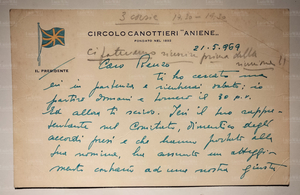 3 corse 14.30 - 19.30
CIRCOLO CANOTTIERI "ANIENE"
FONDATO NEL 1892
21-5-969
Ci prima della riunione
IL PRESIDENTE
Caro Renzo
ti ho cercato ma
eri in partenza e rientravi sabato; io
partirò domani e tornerò il 30 p.v.
Ed allora ti scrivo. Ieri il tuo rappre-
sentante nel Comitato, dimentico degli
accordi presi e che hanno portato alla
sua nomina, ha assunto un atteggia-
mento contrario ad una nostra giusta